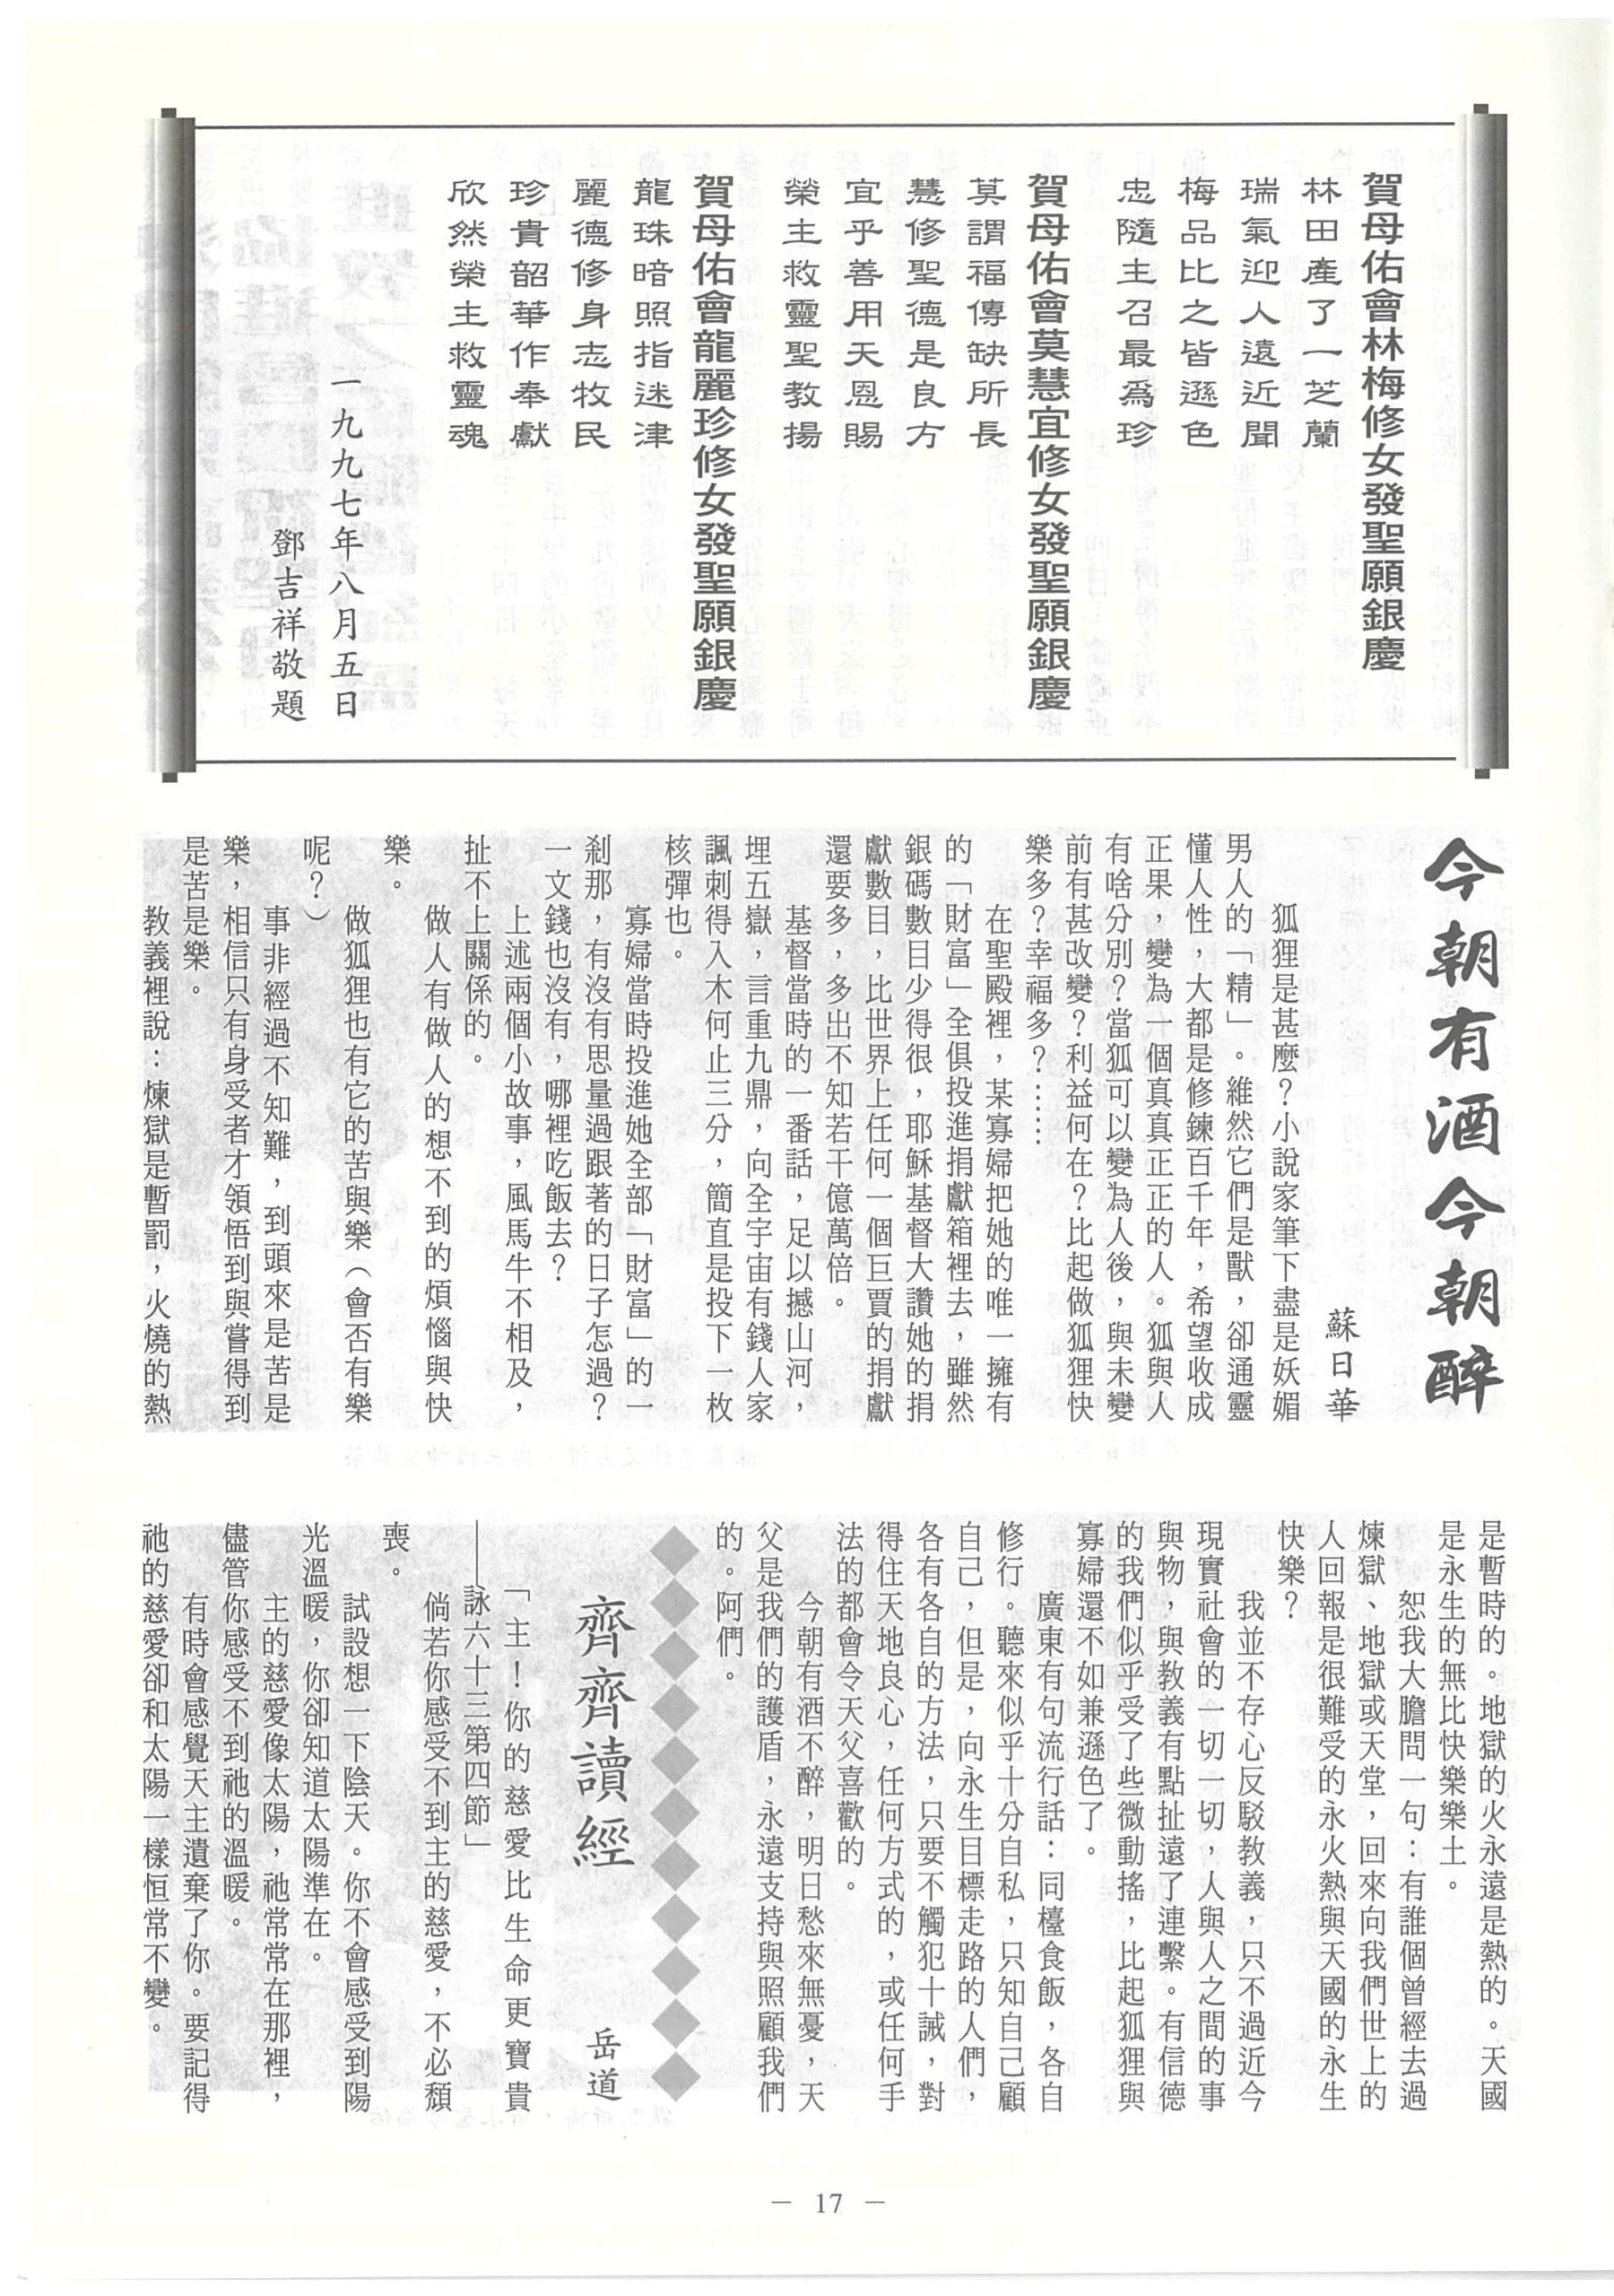 賀母佑會林梅修女發聖願銀慶
林田產了一芝蘭
瑞氣迎人遠近聞
梅品比之皆遜色
忠隨主召最為珍
賀母佑會莫慧宜修女發聖願銀慶
莫謂福傳缺所長
慧修聖德是良方
宜乎善用天恩賜
榮主救靈聖教揚
賀母佑會龍麗珍修女發聖願銀慶
龍珠暗照指迷津
麗德修身志牧民
珍貴韶華作奉獻
欣然榮主救靈魂
一九九七年八月五日
鄧吉祥敬題
今朝有酒今朝醉
蘇日華
狐狸是甚麼？小說家筆下盡是妖媚
男人的「精」。維然它們是獸，卻通靈
懂人性，大都是修鍊百千年，希望收成
正果，變為一個真真正正的人。狐與人
有啥分別？當狐可以變為人後，與未變
前有甚改變？利益何在？比起做狐狸快
樂多？幸福多？……
在聖殿裡，某寡婦把她的唯一擁有
的「財富」全俱投進捐獻箱裡去，雖然
銀碼數目少得很，耶穌基督大讚她的捐
獻數目，比世界上任何一個巨賈的捐獻
還要多，多出不知若干億萬倍。
基督當時的一番話，足以撼山河，
埋五嶽，言重九鼎，向全宇宙有錢人家
諷刺得入木何止三分，簡直是投下一枚
核彈也。
寡婦當時投進她全部「財富」的一
剎那，有沒有思量過跟著的日子怎過？
一文錢也沒有，哪裡吃飯去？
上述兩個小故事，風馬牛不相及，
扯不上關係的。
做人有做人的想不到的煩惱與快
樂。
做狐狸也有它的苦與樂（會否有樂
呢？）
事非經過不知難，到頭來是苦是
樂，相信只有身受者才領悟到與嘗得到
是苦是樂。
教義裡說：煉獄是暫罰，火燒的熱
是暫時的。地獄的火永遠是熱的。天國
是永生的無比快樂樂土。
恕我大膽問一句：有誰個曾經去過
煉獄、地獄或天堂，回來向我們世上的
人回報是很難受的永火熱與天國的永生
快樂？
我並不存心反駁教義，只不過近今
現實社會的一切一切，人與人之間的事
與物，與教義有點扯遠了連繫。有信德
的我們似乎受了些微動搖，比起狐狸與
寡婦還不如兼遜色了。
廣東有句流行話：同檯食飯，各自
修行。聽來似乎十分自私，只知自己顧
自己，但是，向永生目標走路的人們，
各有各自的方法，只要不觸犯十誡，對
得住天地良心，任何方式的，或任何手
法的都會令天父喜歡的。
今朝有酒不醉，明日愁來無憂，天
父是我們的護盾，永遠支持與照顧我們
的。阿們。
齊齊讀經
岳道
「主！你的慈愛比生命更寶貴
——詠六十三第四節」
倘若你感受不到主的慈愛，不必頹
喪。
試設想一下陰天。你不會感受到陽
光溫暖，你卻知道太陽準在。
主的慈愛像太陽，祂常常在那裡，
儘管你感受不到祂的溫暖。
有時會感覺天主遺棄了你。要記得
祂的慈愛卻和太陽一樣恒常不變。
— 17 —